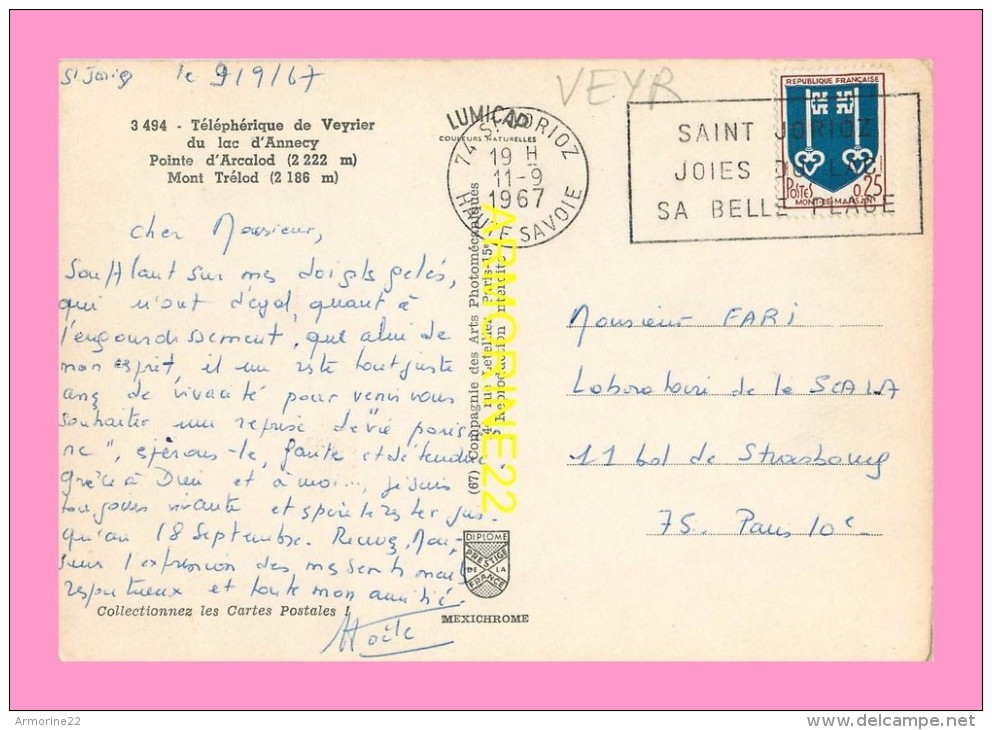 St Jorioz le 9/9/67
VEYR
3 494 - Téléphérique de Veyrier
du lac d'Annecy
Pointe d'Arcalod (2 222 m)
Mont Trélod (2 186 m)
LUMICAP
COULEURS NATURELLES
74 ST JORIOZ
19 H
11-9
1967
HAUTE SAVOIE
SAINT JORIOZ
JOIES DU LAC
SA BELLE PLAGE
REPUBLIQUE FRANÇAISE
POSTES 0,25
MONT-DE-MARSAN
Cher Monsieur,
Soufflant sur mes doigts gelés,
qui n'ont d'égal, quant à
l'engourdissement, que celui de
mon esprit, il me reste tout juste
de vivacité pour venir vous
souhaiter une reprise de "vie parisien
ne", espérons-le, faite et détendue
grâce à Dieu et à moi..., je suis
toujours vivante et rester jus-
qu'au 18 Septembre. Recevez, Mon-
sieur l'expression de mes sentiments
respectueux et toute mon amitié.
Collectionnez les Cartes Postales !
(67) Compagnie des Arts Photomécaniques
rue Letellier, Paris-15e
Reproduction interdite
ARMORINE22
DIPLOME
PRESTIGE
DE LA
FRANCE
MEXICHROME
Monsieur FARI
Laboratoire de la SCALA
11 bd de Strasbourg
75. Paris 10e
Armorine22
http://www.delcampe.net